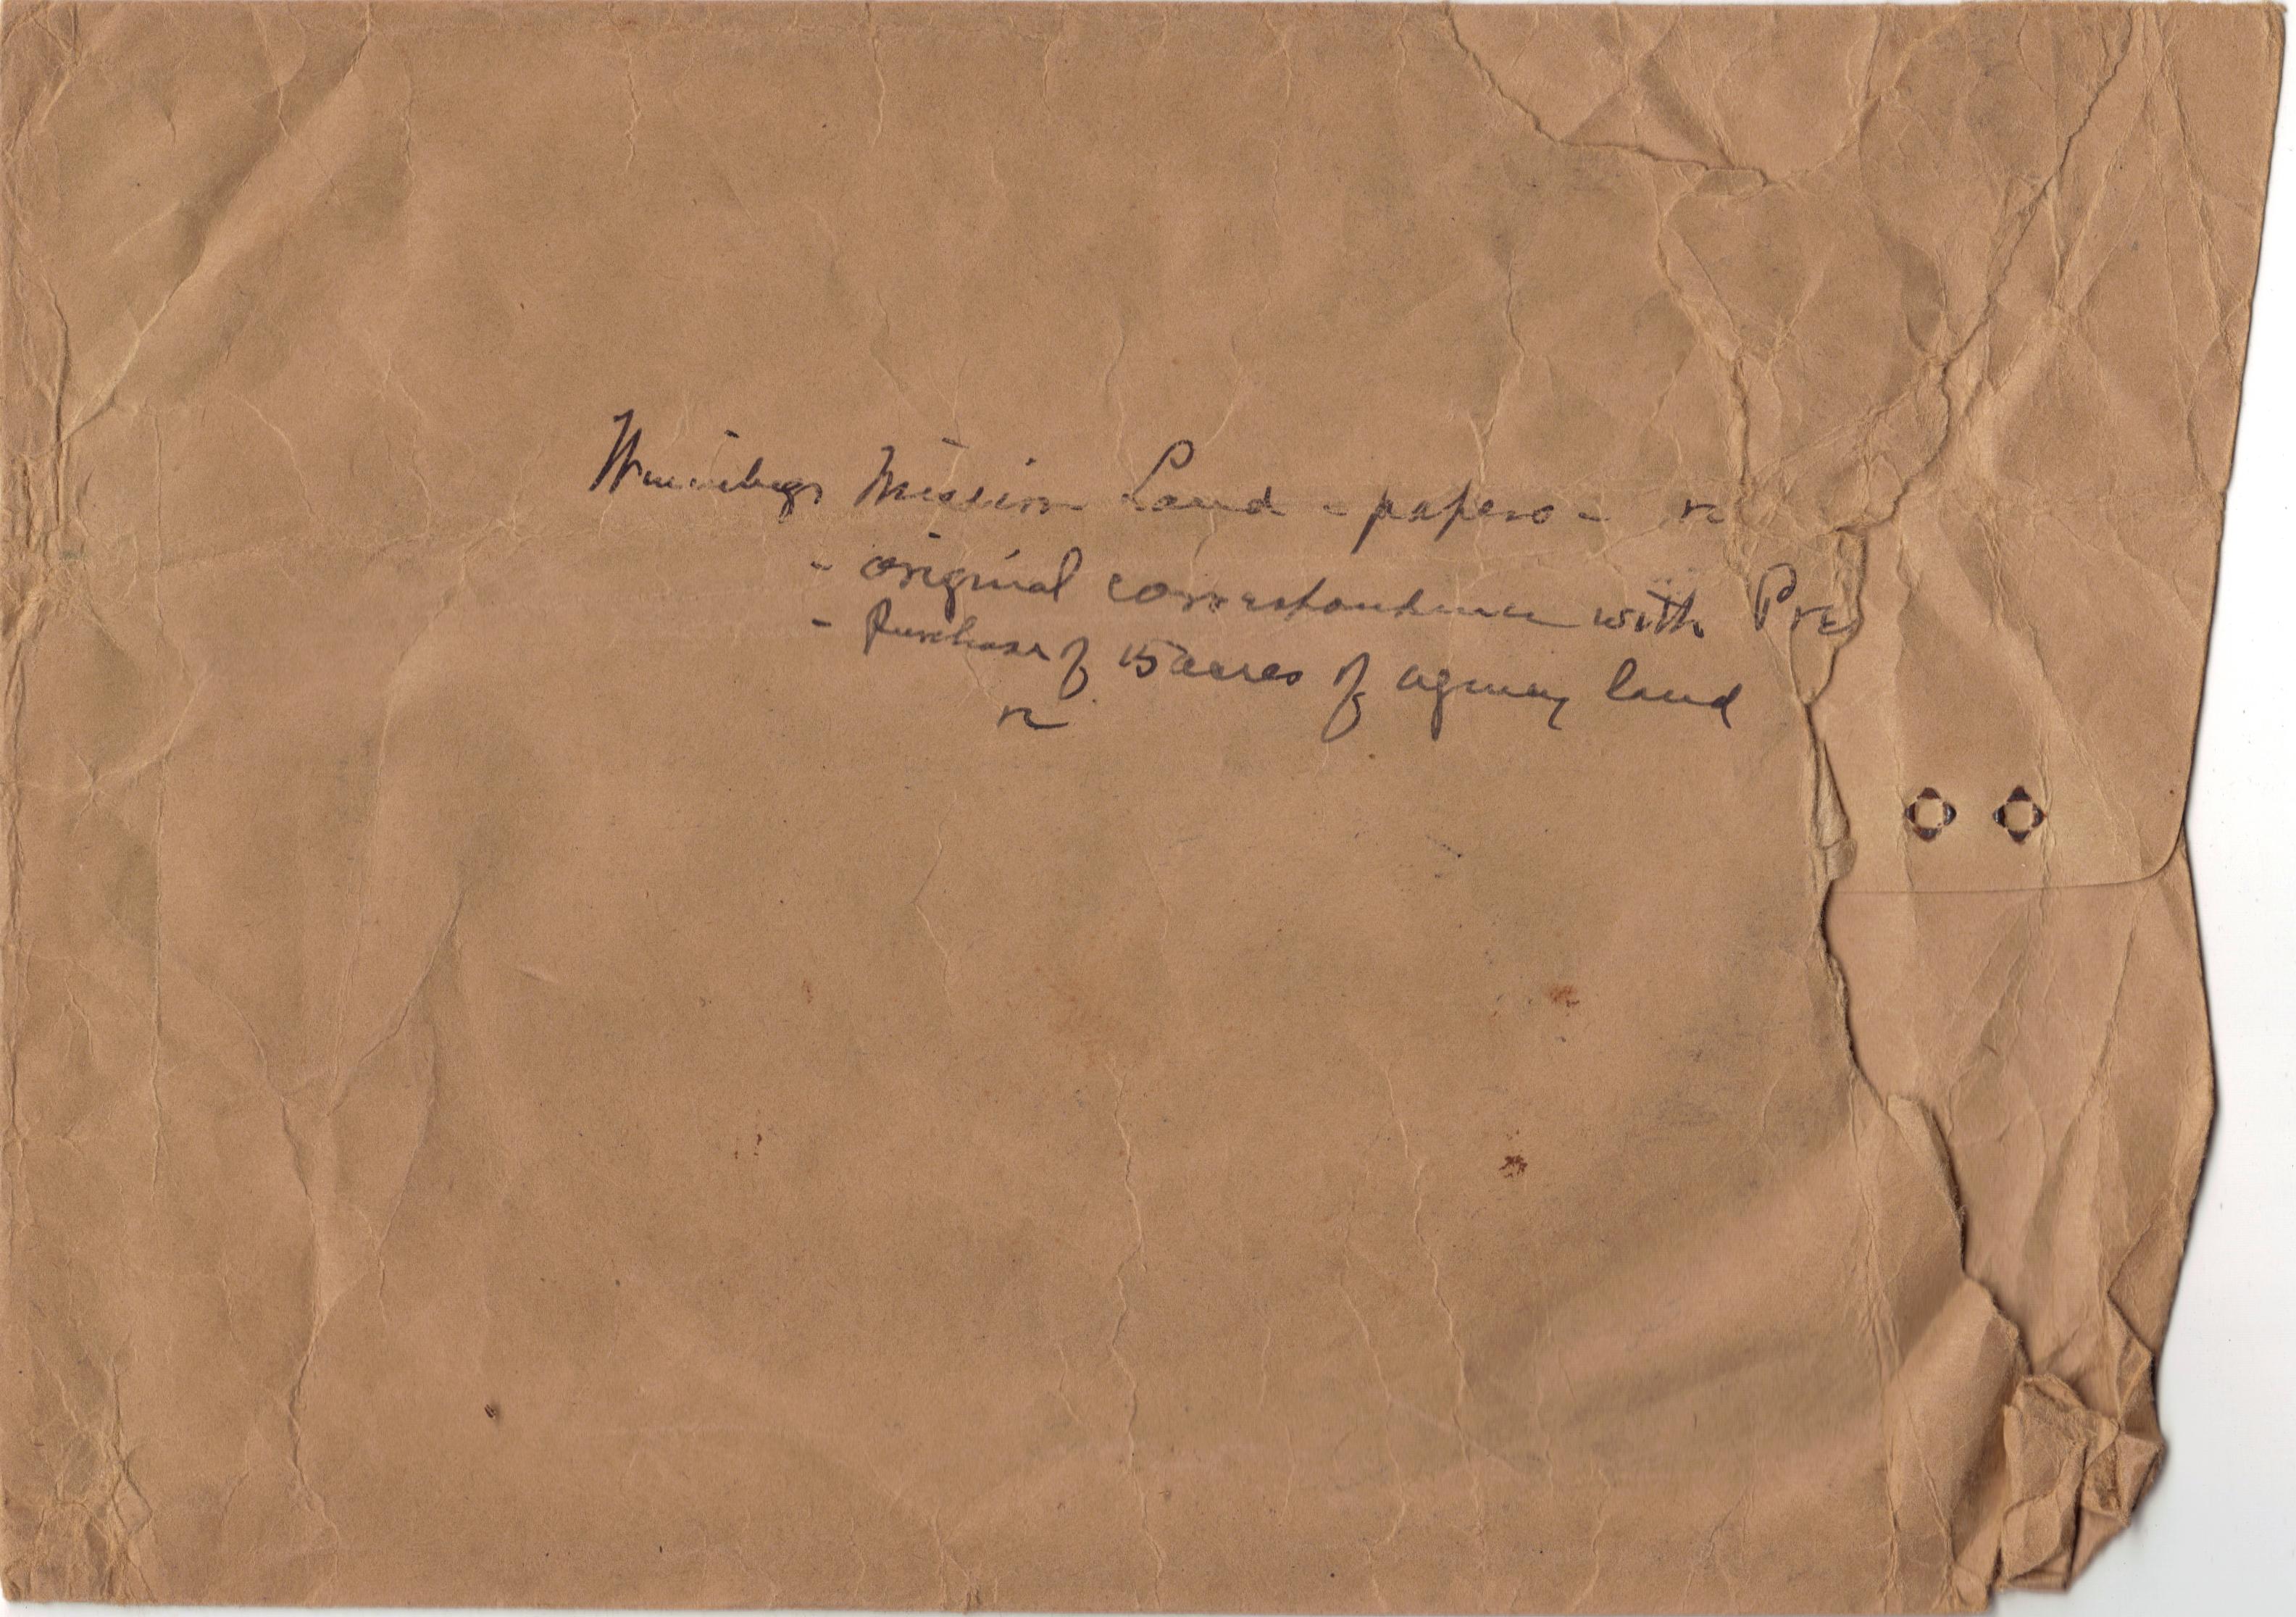 Winnebago Mission Land - papers - re
- original correspondence with Pre
- Purchase of 15 acres of agency land
re